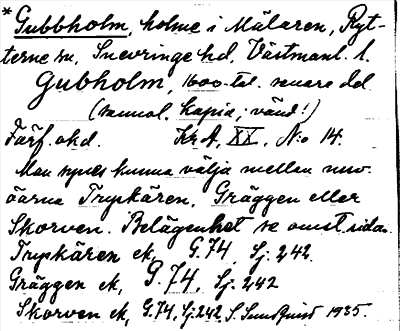 * Gubbholm, holme i Mälaren, Ryt-
terne sn, Snevringe hd, Västmanl. l.
Gubholm, 1600-tal. senare del.
(sannol. kopia; vänd!)
Förf. okd. Kr. A, XX, No 14.
Man synes kunna välja mellan nuv.
öarna Trypkären, Gräggen eller
Skorven. Belägenhet se omst. sidan.
Trypkären ek, G.74, Sj. 242.
Gräggen ek, G.74, Sj. 242
Skorven ek, G.74, Sj. 242, S. Sundquist 1935.